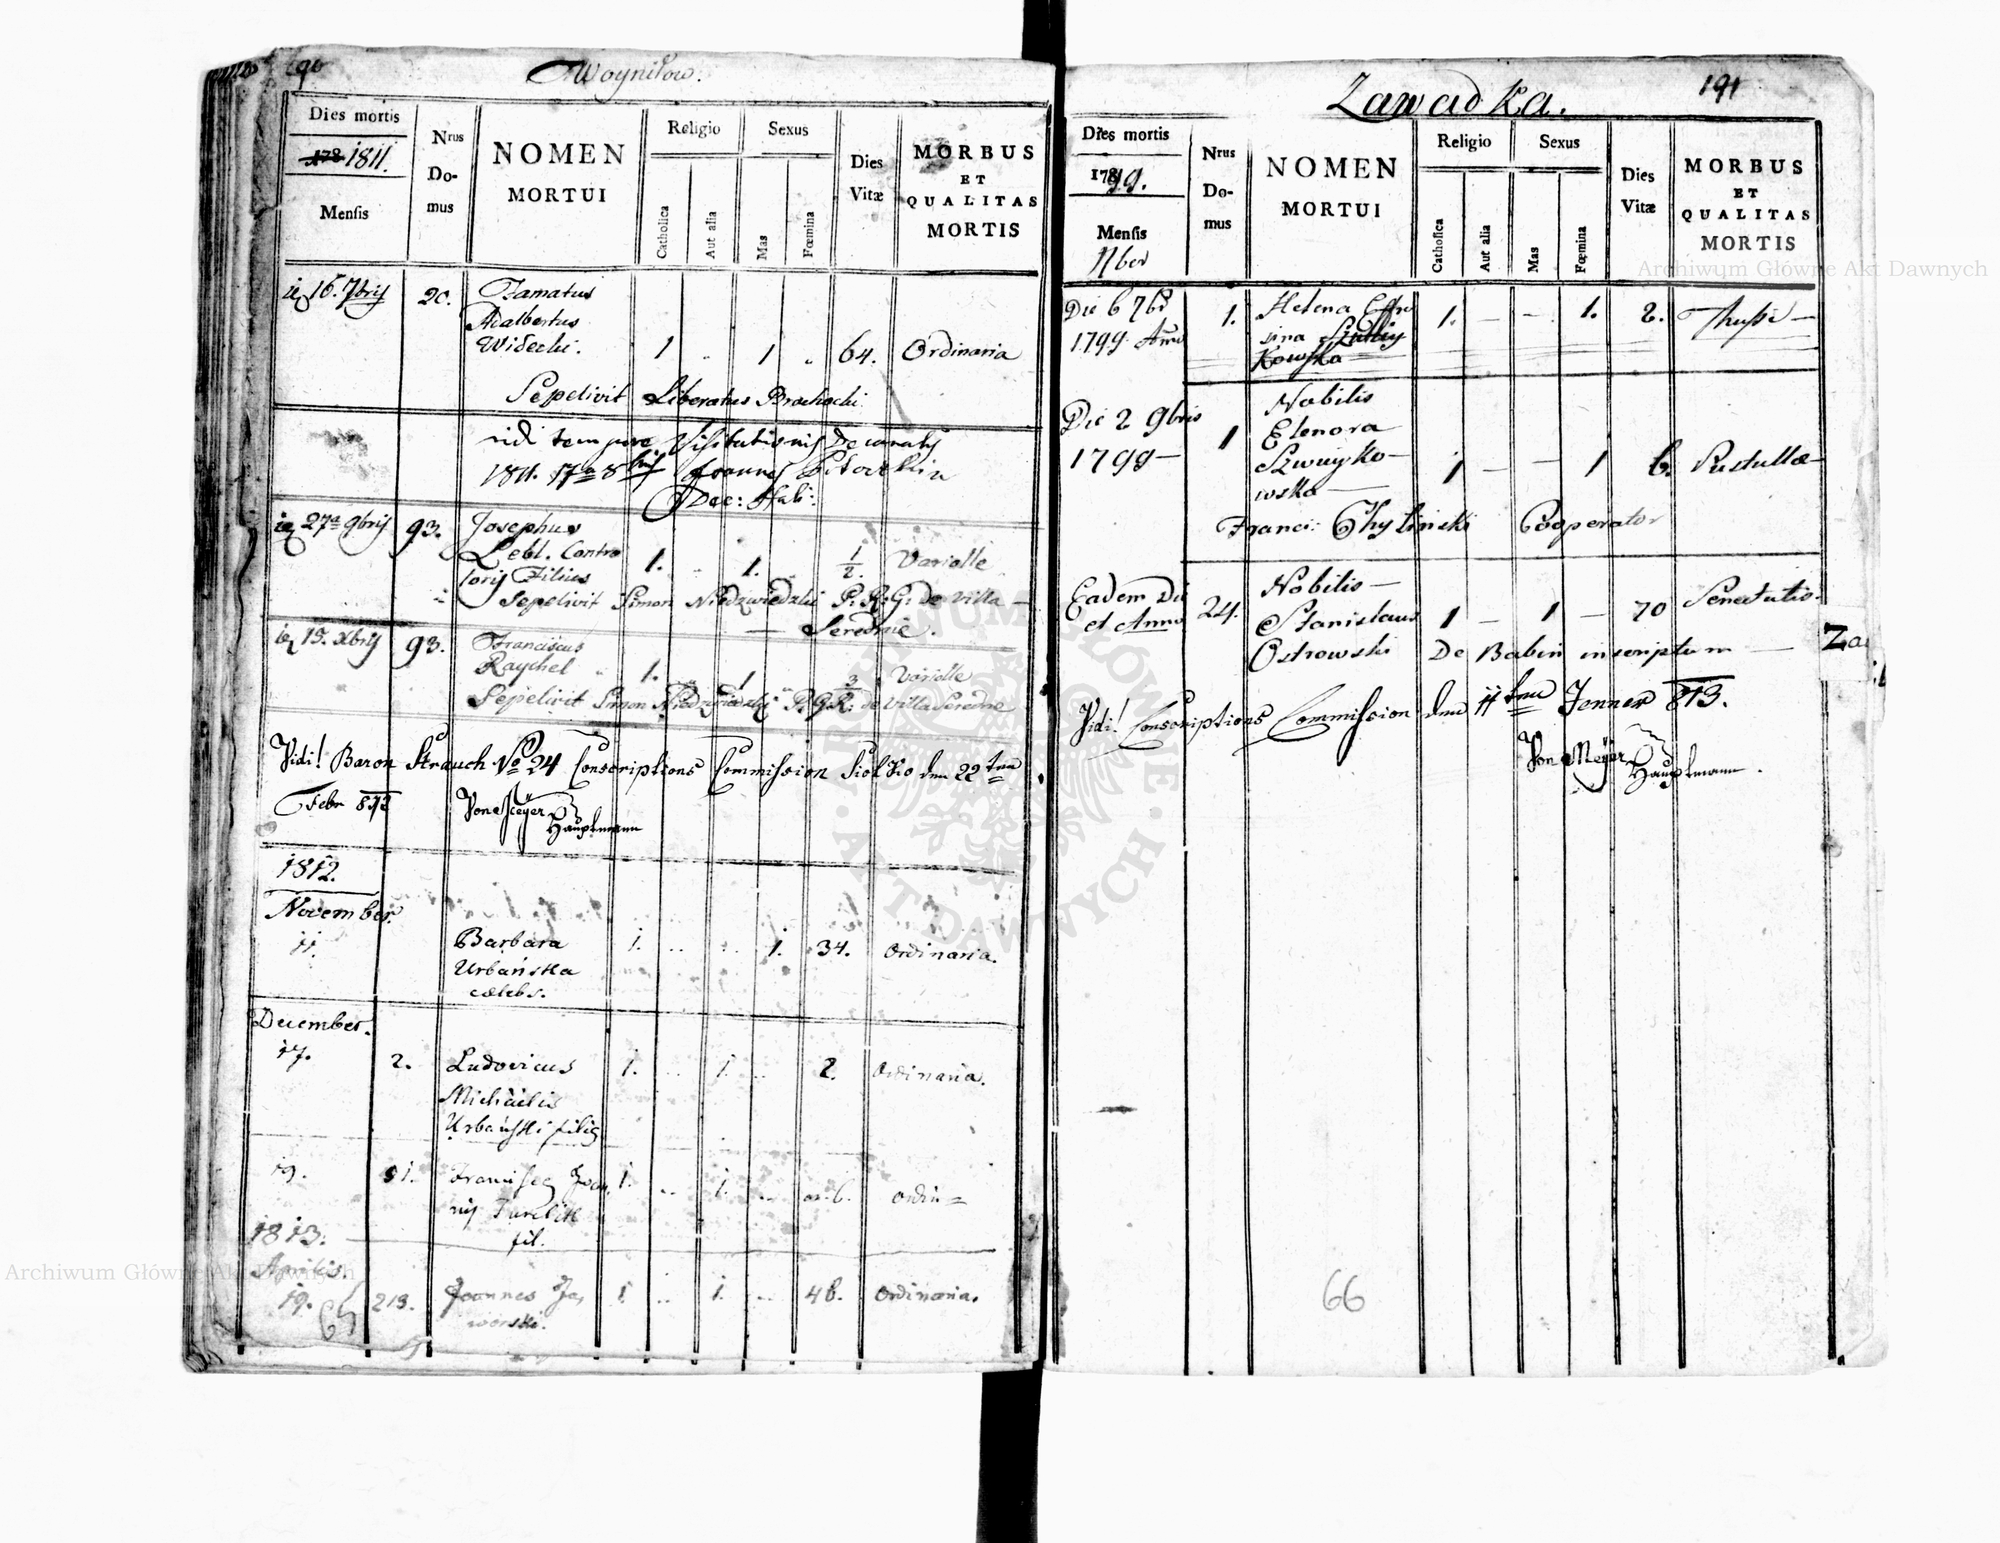 190
Woyniłow.
Dies mortis
178 1811.
Mensis
Nrus
Do-
mus
NOMEN
MORTUI
Religio
Catholica
Aut alia
Sexus
Mas
Fœmina
Dies
Vitæ
MORBUS
ET
QUALITAS
MORTIS
16. 7bris 20. Famatus
Adalbertus
Widecki. 1 1 64. Ordinaria
Sepelivit Liberatus
Vidi tempore Visitationis Decanalis
1811. 17a 8bris Joannes
Dec: Hali:
27a 9bris 93. Josephus
Lebl. Contro
loris Filius 1. 1. 1/2. Variolle
Sepelivit Simon Niedzwiedzki P: R: G: de Villa
Serednie.
15. Xbris 93. Franciscus
Raychel 1. 1 3 Variolle
Sepelivit Simon Niedzwiedzki P. G. R: de Villa Serednie
Vidi! Baron Strauch No 24 Conscriptions Commission Siolko den 22ten
Febr 812 Von Meyer
Hauptmann
1812.
November.
11. Barbara 1. .. .. 1. 34. Ordinaria.
Urbańska
cælebs.
December.
17. 2. Ludovicus 1. .. 1. .. 2. Ordinaria.
Michaelis
Urbański filius
19. 51. Joan 1. .. 1. .. 6. ordin=
nis
fil.
1813.
Aprilis
19. 213. Joannes Ja, 1 .. 1. .. 46. Ordinaria.
worski.
65
191
Zawadka.
Dies mortis
1799.
Mensis
7ber
Nrus
Do-
mus
NOMEN
MORTUI
Religio
Catholica
Aut alia
Sexus
Mas
Fœmina
Dies
Vitæ
MORBUS
ET
QUALITAS
MORTIS
Die 6 7br 1. Helena 1. — — 1. 2. Thussi —
1799 Anno sina
kowska
Die 2 9bris Nobilis
1799 — 1 Elenora
Szwuyko- 1 — — 1 6. Pustullæ —
wska —
Franci: Chyliński Cooperator
Eadem Die Nobilis —
et Anno 24. Stanislaus 1 — 1 — 70 Senectutis.
Ostrowski De Babin inscriptum —
Vidi! Conscriptions Commission den 11ten Jenner 813.
Von Meyer
Hauptmann.
66
Za
Archiwum Główne Akt Dawnych
Archiwum Główne Akt Dawnych
ARCHIWUM GŁÓWNE · AKT DAWNYCH ·